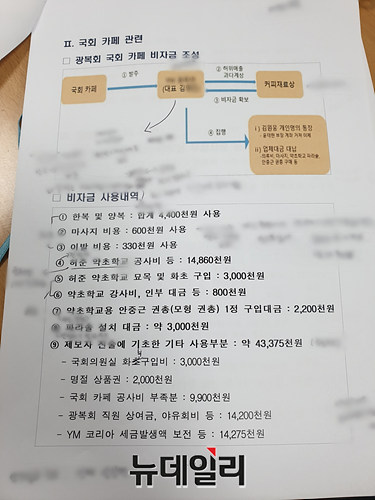 II. 국회 카페 관련
□ 광복회 국회 카페 비자금 조성
국회 카페
① 발주
(대표
② 허위매출
과다계상
③ 비자금 확보
커피재료상
④ 집행
i) 김원웅 개인명의 통장
ii) 업체대금 대납
안중근 권총 구매 등
□ 비자금 사용내역
① 한복 및 양복 : 합계 4,400천원 사용
② 마사지 비용 : 600천원 사용
③ 이발 비용 : 330천원 사용
④ 허준 약초학교 공사비 등 : 14,860천원
⑤ 허준 약초학교 묘목 및 화초 구입 : 3,000천원
⑥ 약초학교 강사비, 인부 대금 등 : 800천원
⑦ 약초학교용 안중근 권총(모형 권총) 1정 구입대금 : 2,200천원
⑧ 파라솔 설치 대금 : 약 3,000천원
⑨ 제보자 진술에 기초한 기타 사용부분 : 약 43,375천원
- 국회의원실 화초구입비 : 3,000천원
- 명절 상품권 : 2,000천원
- 국회 카페 공사비 부족분 : 9,900천원
- 광복회 직원 상여금, 야유회비 등 : 14,200천원
- YM 코리아 세금발생액 보전 등 : 14,275천원
뉴데일리